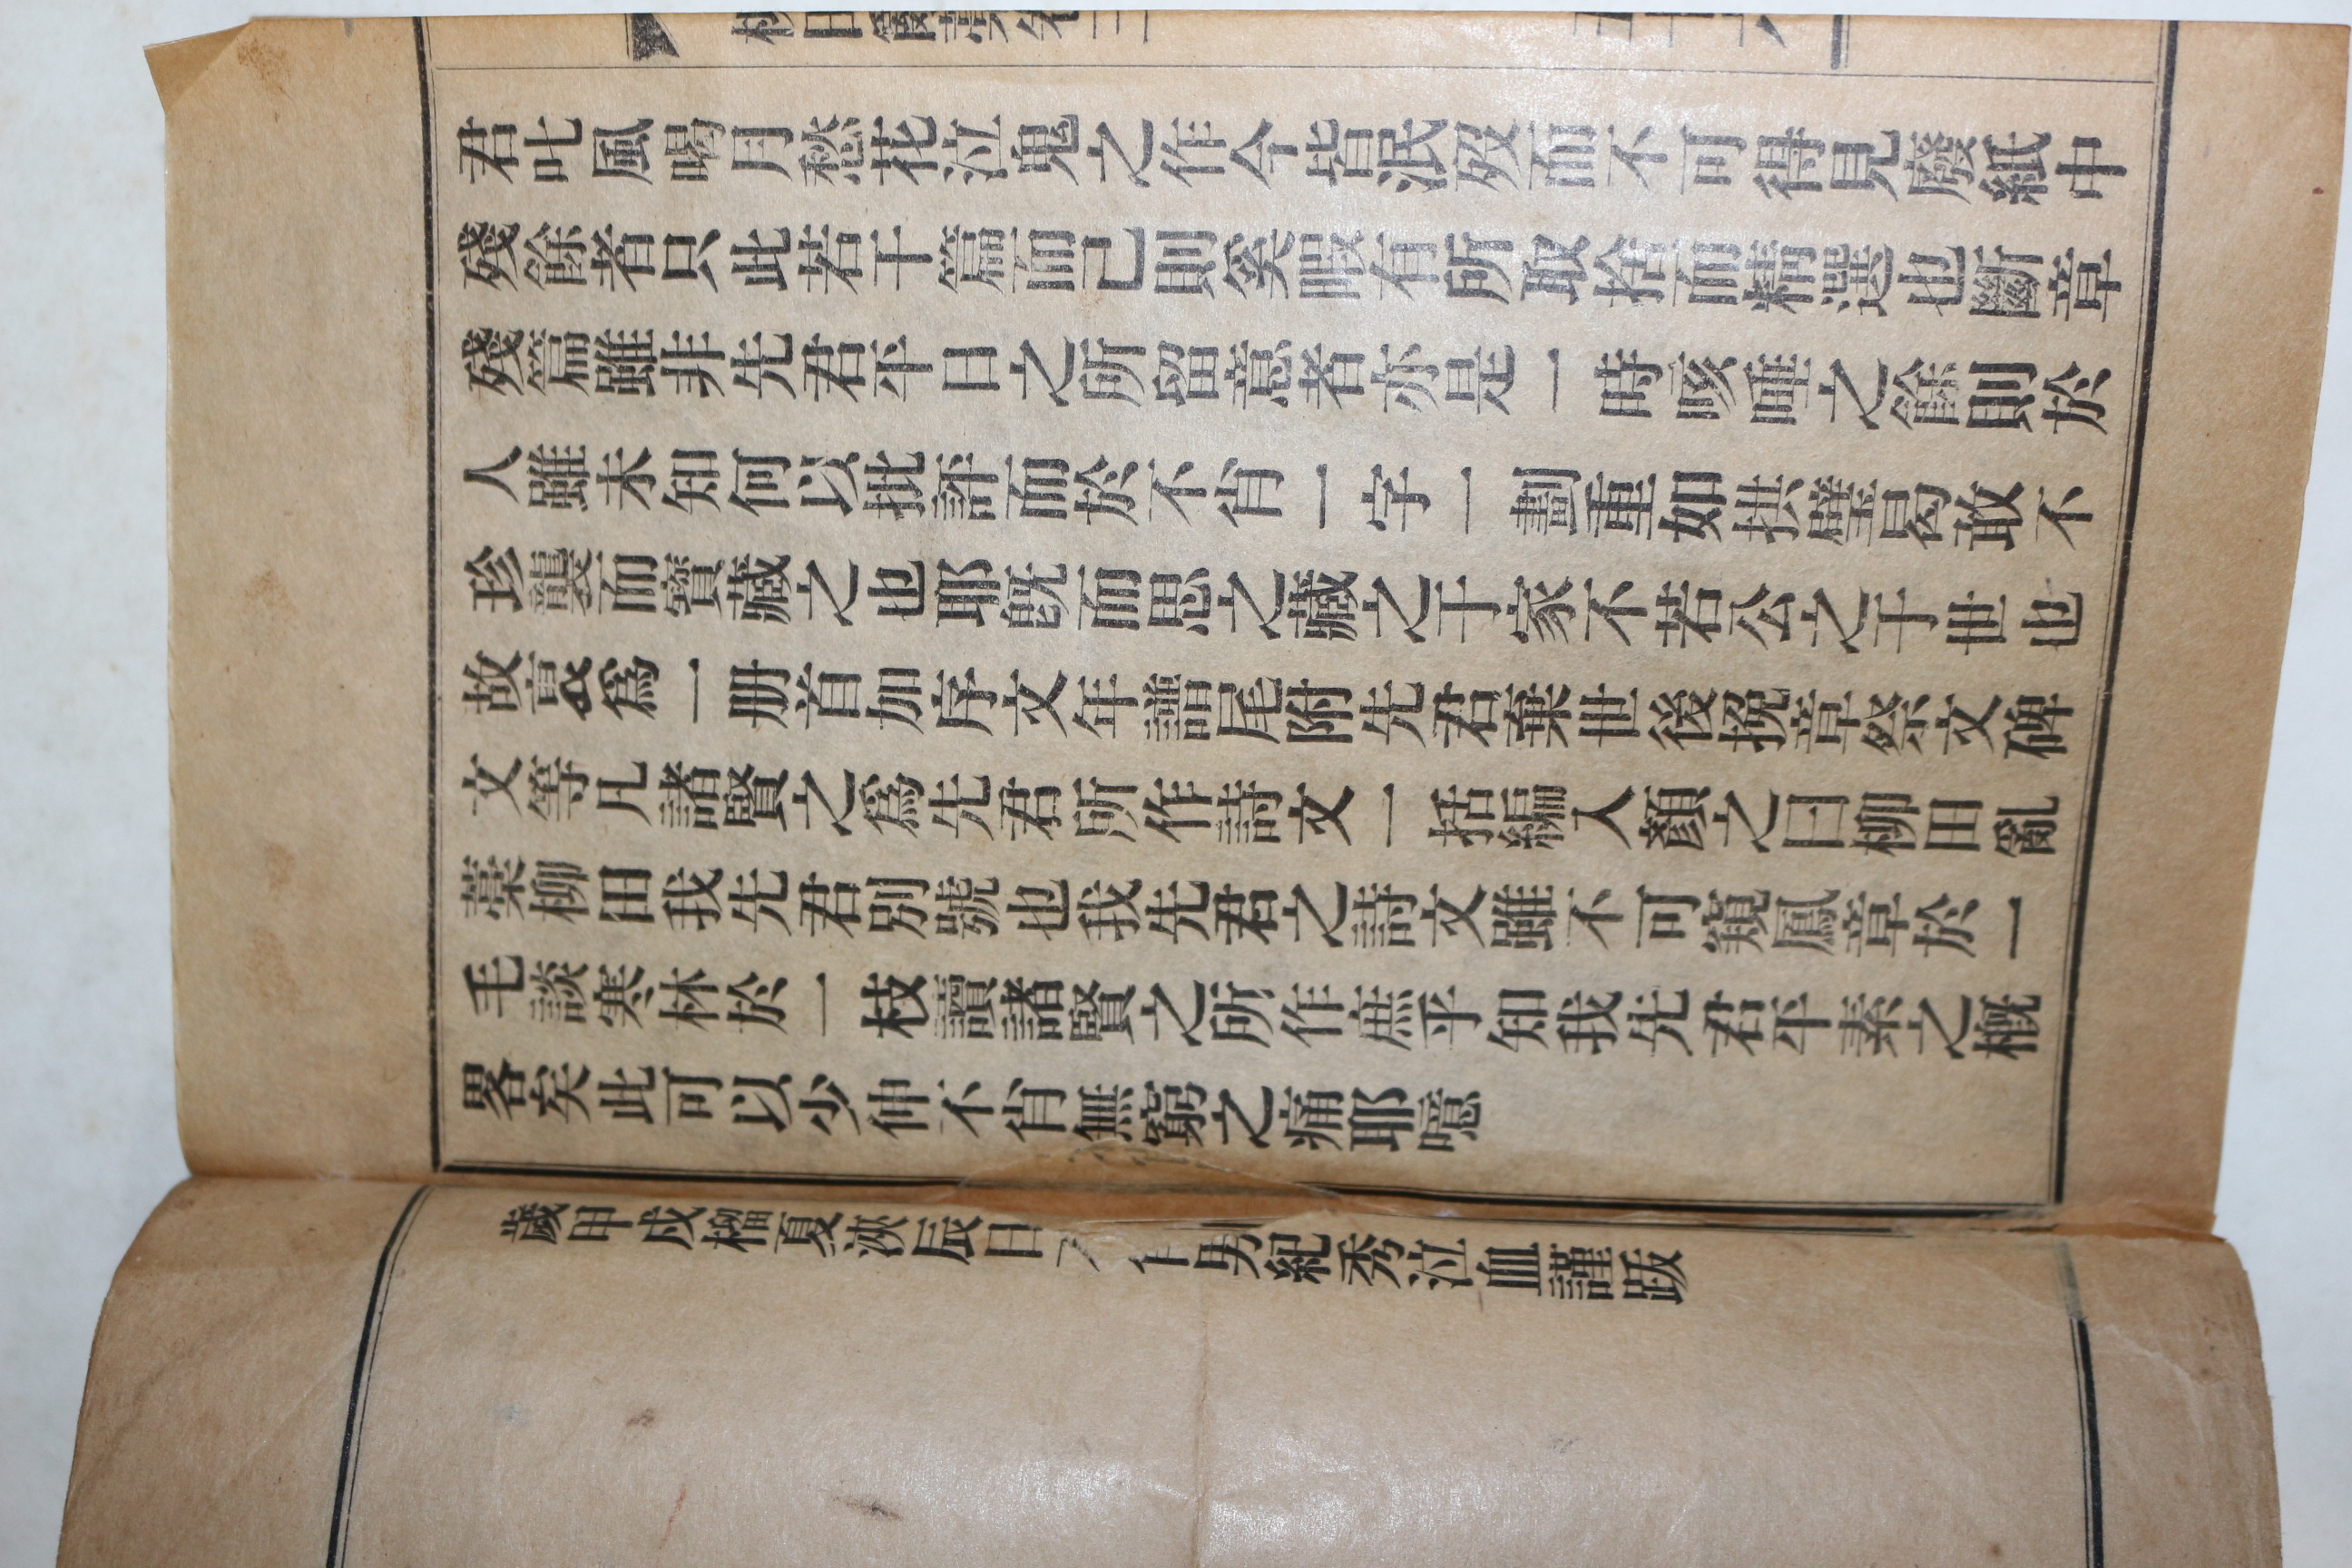 柳田亂藁卷三
君叱風喝月愁花泣鬼之作今皆泯歿而不可得見廢紙中
殘餘者只此若干篇而己則奚暇有所取捨而精選也斷章
殘篇雖非先君平日之所留意者亦是一時咳唾之餘則於
人雖未知何以批評而於不肖一字一劃重如拱璧曷敢不
珍襲而寶藏之也耶旣而思之藏之于家不若公之于世也
故裒爲一册首加序文年譜尾附先君棄世後挽章祭文碑
文等凡諸賢之爲先君所作詩文一括編入顏之曰柳田亂
藁柳田我先君別號也我先君之詩文雖不可窺鳳章於一
毛談寒林於一枝讀諸賢之所作庶乎知我先君平素之槪
畧矣此可以少仲不肖無窮之痛耶噫
歲甲戍榴夏浹辰日不肖男紀秀泣血謹跋